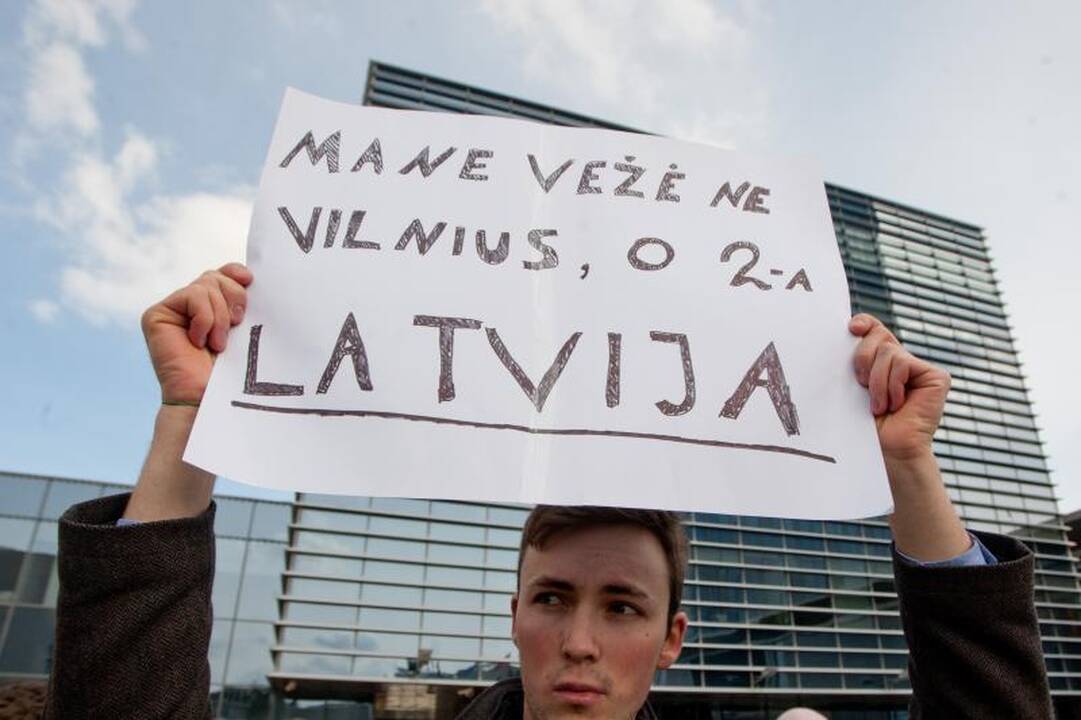 MANE VEŽĖ NE
VILNIUS, O 2-A
LATVIJA